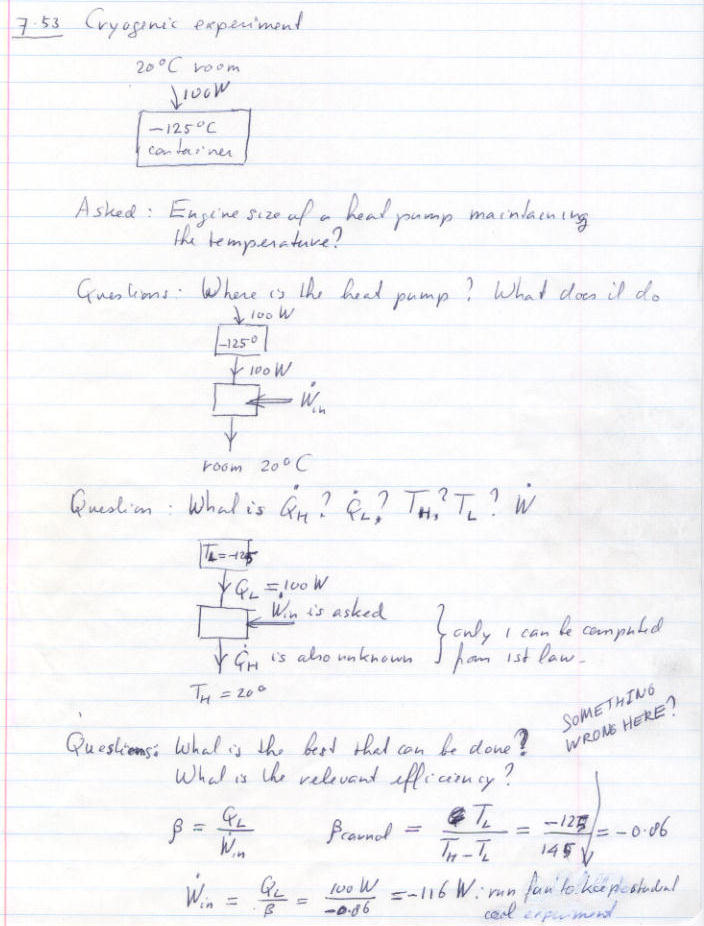 7.53 Cryogenic experiment
20°C room
100W
-125°C
container
Asked: Engine size of a heat pump maintaining
the temperature?
Questions: Where is the heat pump? What does it do
100 W
-125°
100 W
Ẇin
room 20°C
Question: What is Q̇H? Q̇L? TH? TL? Ẇ
TL = -125
Q̇L = 100 W
Ẇin is asked
Q̇H is also unknown } only 1 can be computed
from 1st law.
TH = 20°
SOMETHING
WRONG HERE?
Questions: What is the best that can be done?
What is the relevant efficiency?
β = QL / Ẇin βcarnot = TL / (TH - TL) = -125 / 145 = -0.86
Ẇin = QL / β = 100 W / -0.86 = -116 W: run fan to keep student
cool experiment